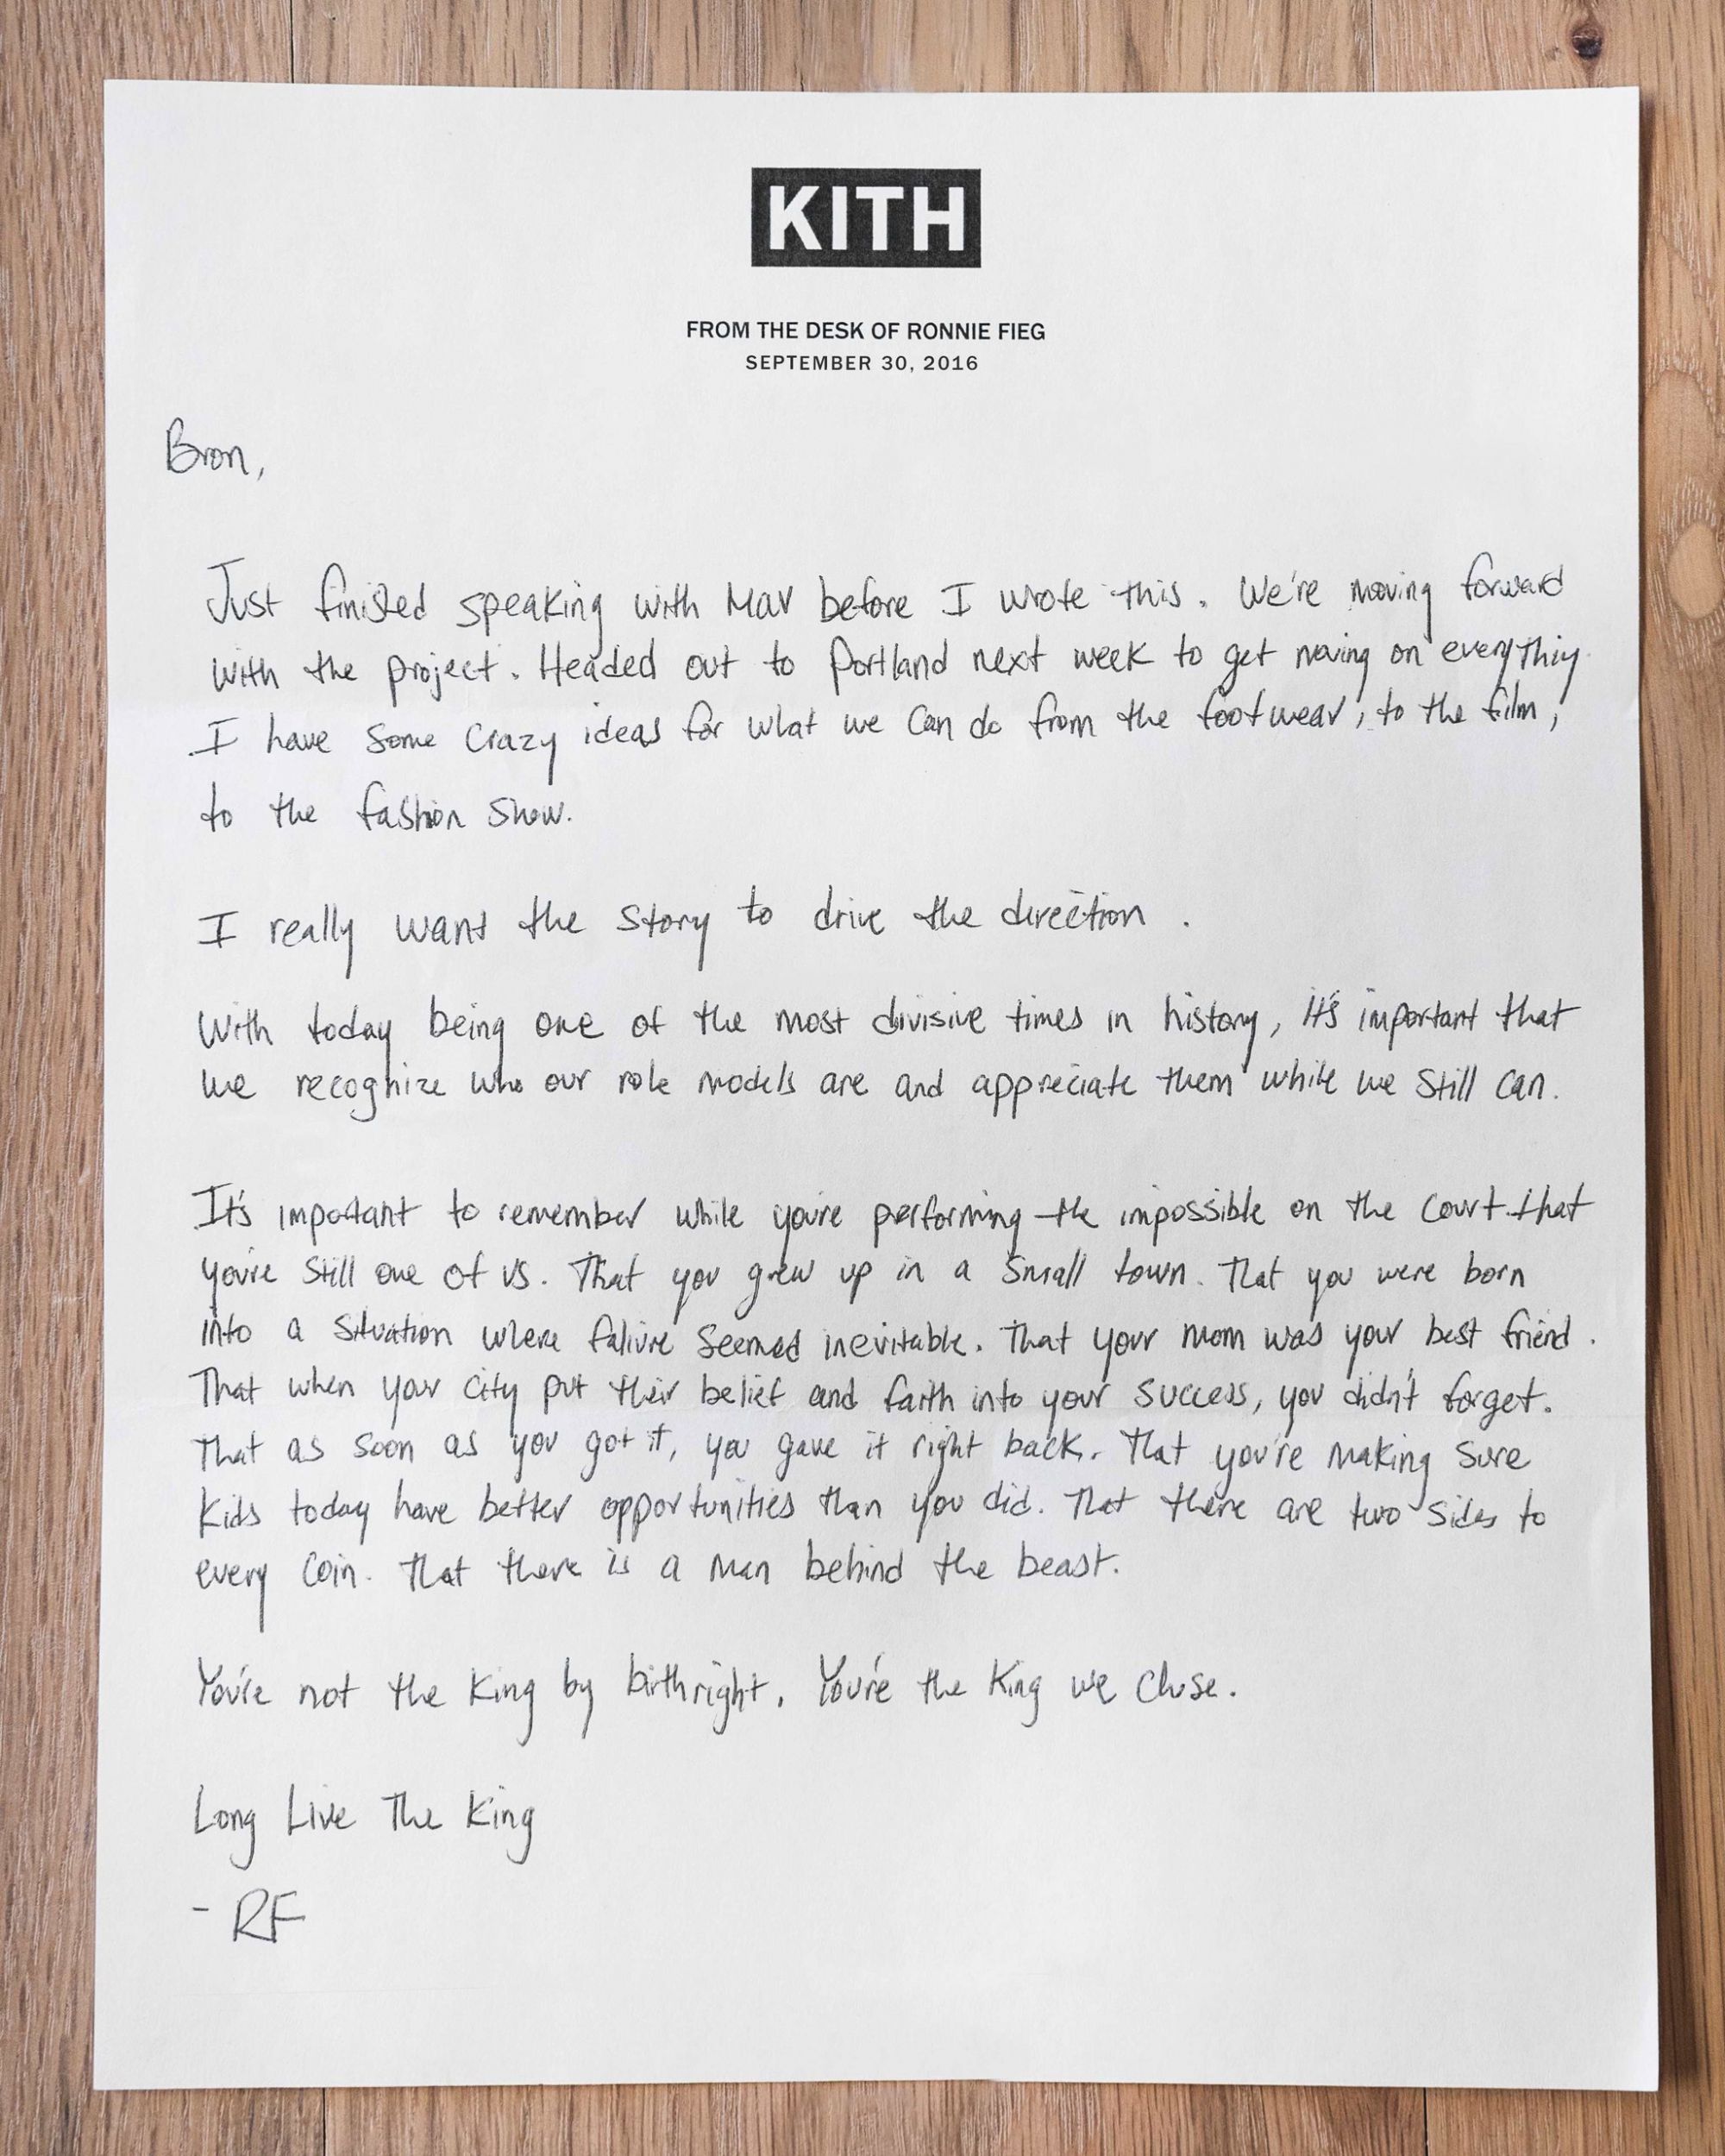 KITH
FROM THE DESK OF RONNIE FIEG
SEPTEMBER 30, 2016
Bron,
Just finished speaking with Mav before I wrote this. We're moving forward
with the project. Headed out to Portland next week to get moving on everything
I have some crazy ideas for what we can do from the footwear, to the film,
to the fashion show.
I really want the story to drive the direction.
With today being one of the most divisive times in history, it's important that
we recognize who our role models are and appreciate them while we still can.
It's important to remember while you're performing the impossible on the court that
you're still one of us. That you grew up in a small town. That you were born
into a situation where faliure seemed inevitable. That your mom was your best friend.
That when your city put their belief and faith into your success, you didn't forget.
That as soon as you got it, you gave it right back. That you're making sure
kids today have better opportunities than you did. That there are two sides to
every coin. That there is a man behind the beast.
You're not the King by birthright. You're the King we chose.
Long Live The King
- RF